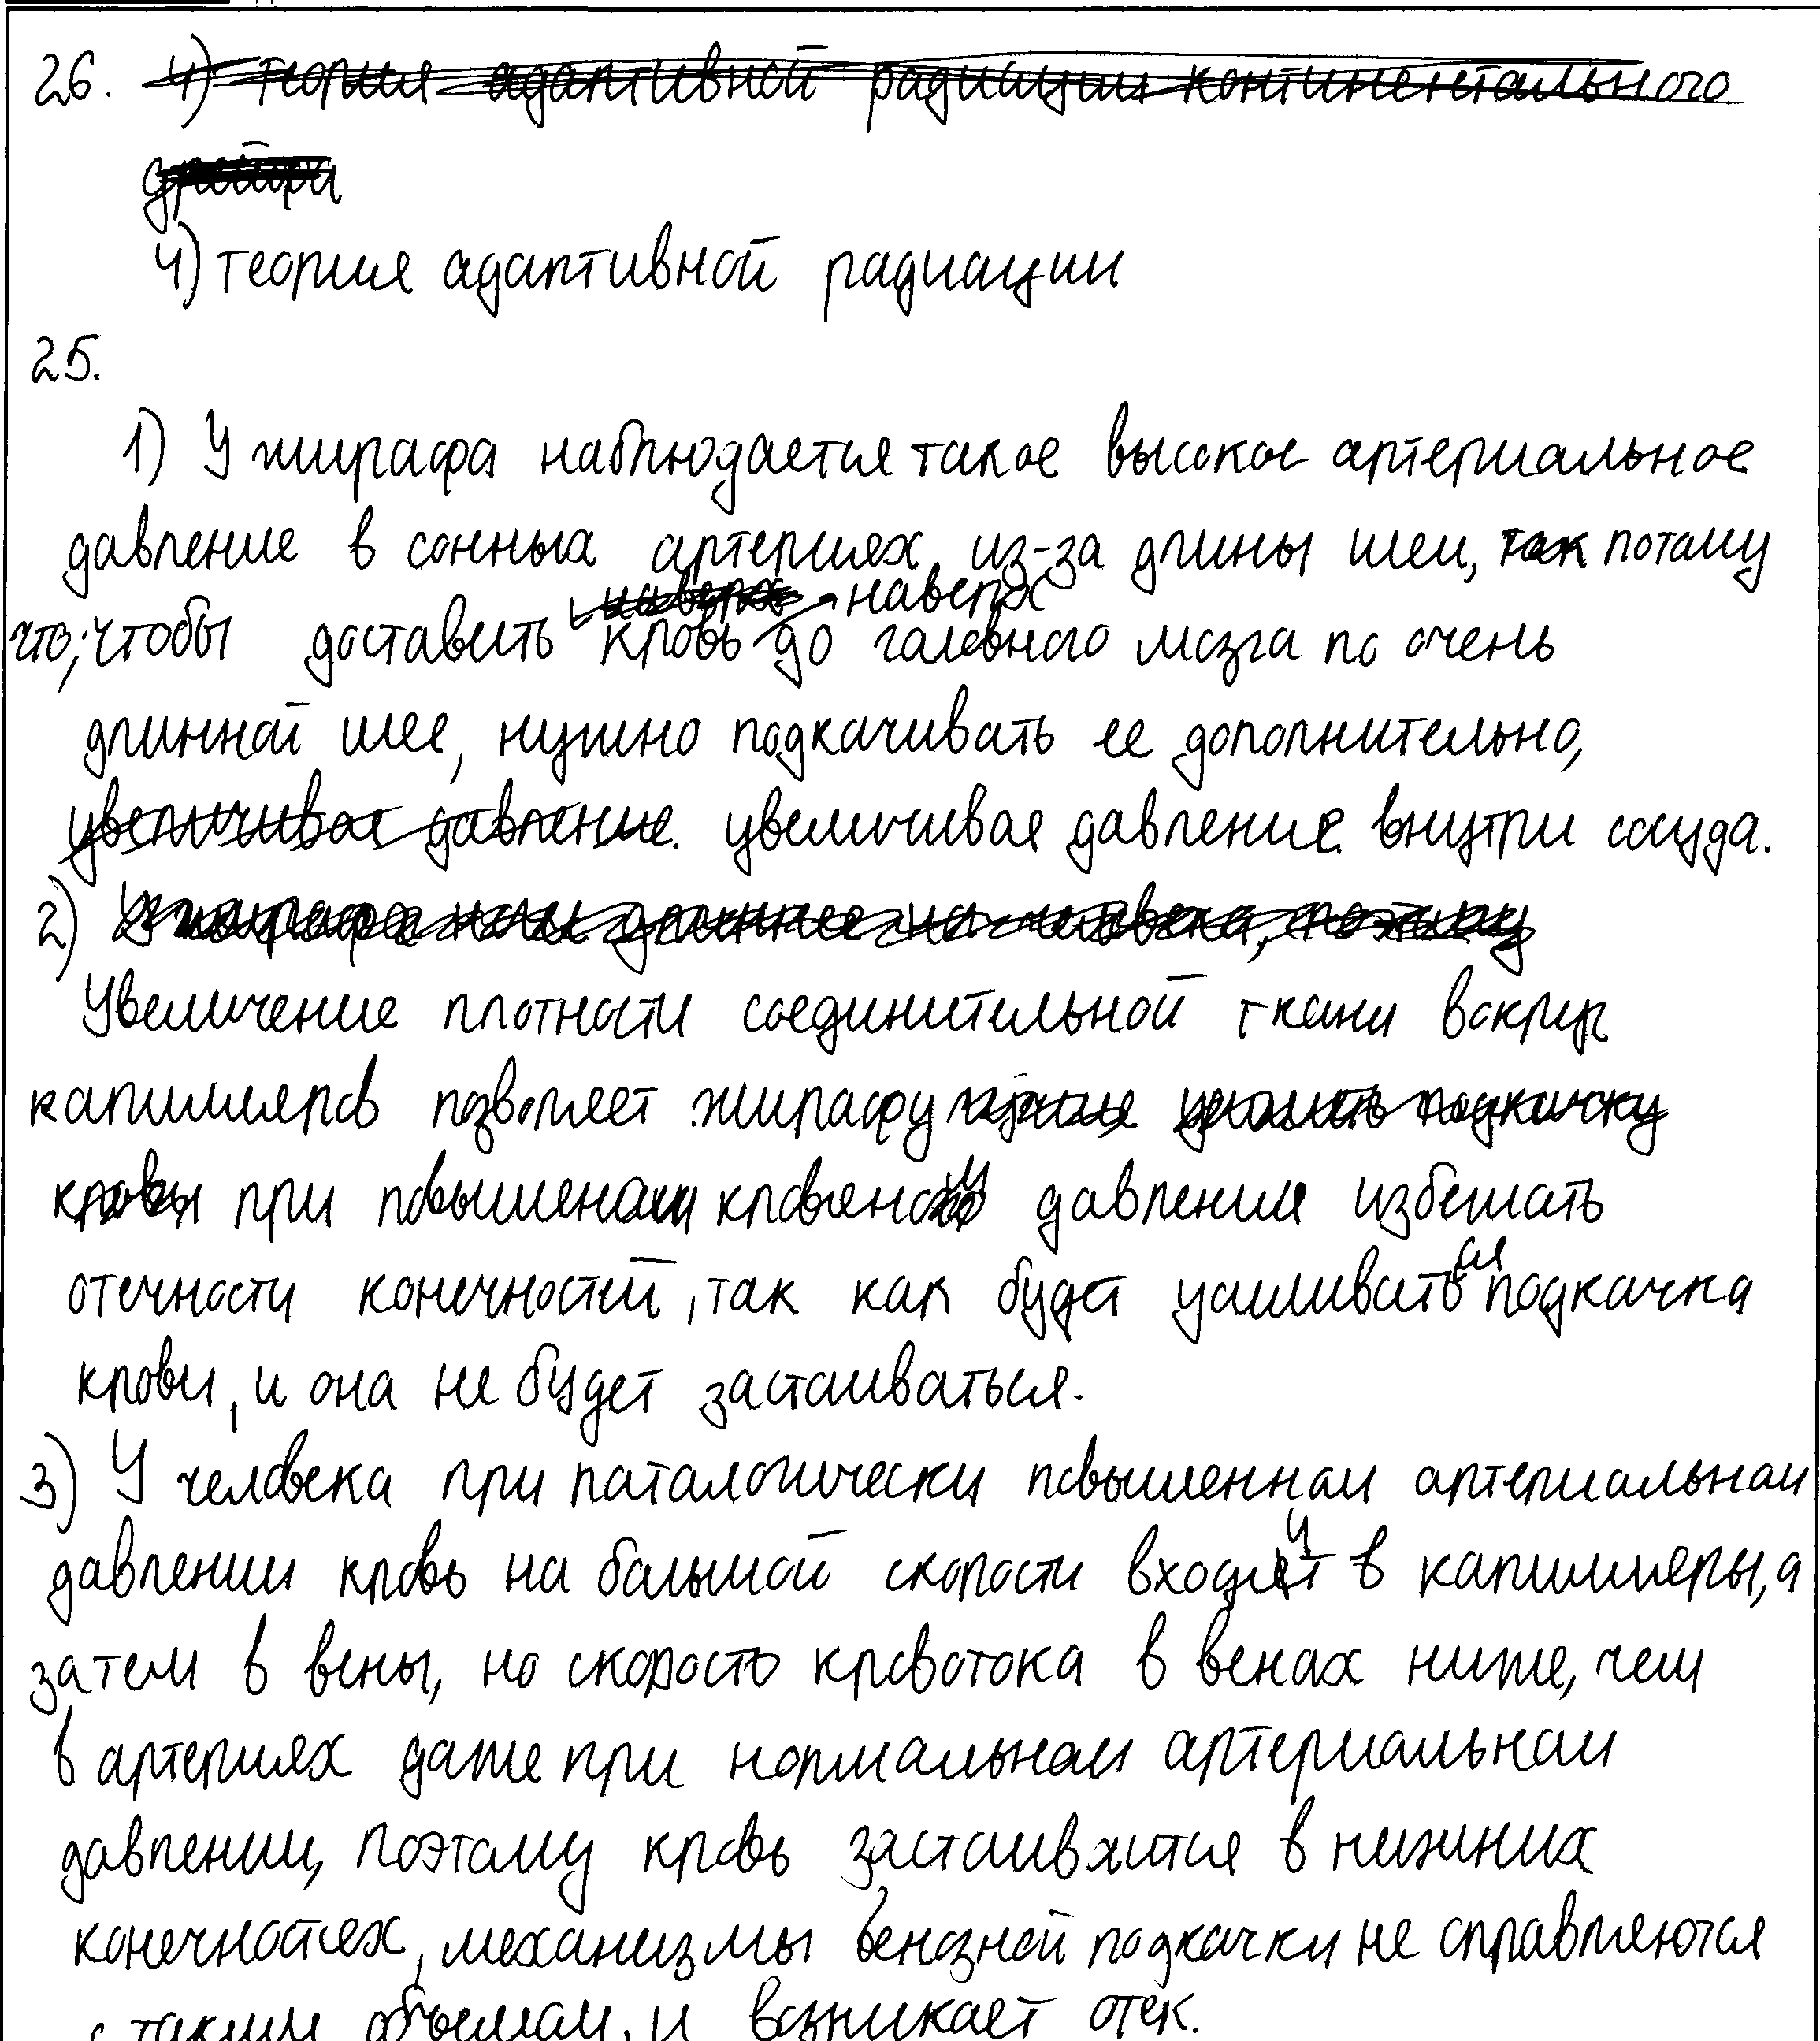 26. 4) теория адаптивной радиации континентального
дрейфа
4) теория адаптивной радиации
25.
1) У жирафа наблюдается такое высокое артериальное
давление в сонных артериях из-за длины шеи, так потому
что, чтобы доставить наверх кровь до наверх головного мозга по очень
длинной шее, нужно подкачивать ее дополнительно,
увеличивая давление. увеличивая давление внутри сосуда.
2) У жирафа шеи длиннее чем человека, поэтому
Увеличение плотности соединительной ткани вокруг
капилляров позволяет жирафу усилить подкачку
крови при повышеном кровяном давлении избежать
отечности конечностей, так как будет усиливаться подкачка
крови, и она не будет застаиваться.
3) У человека при паталогически повышенном артериальном
давлении кровь на большой скорости входит в капилляры, а
затем в вены, но скорость кровотока в венах ниже, чем
в артериях даже при нормальном артериальном
давлении, поэтому кровь застаивается в нижних
конечностях, механизмы венозной подкачки не справляются
с таким объемом, и возникает отек.